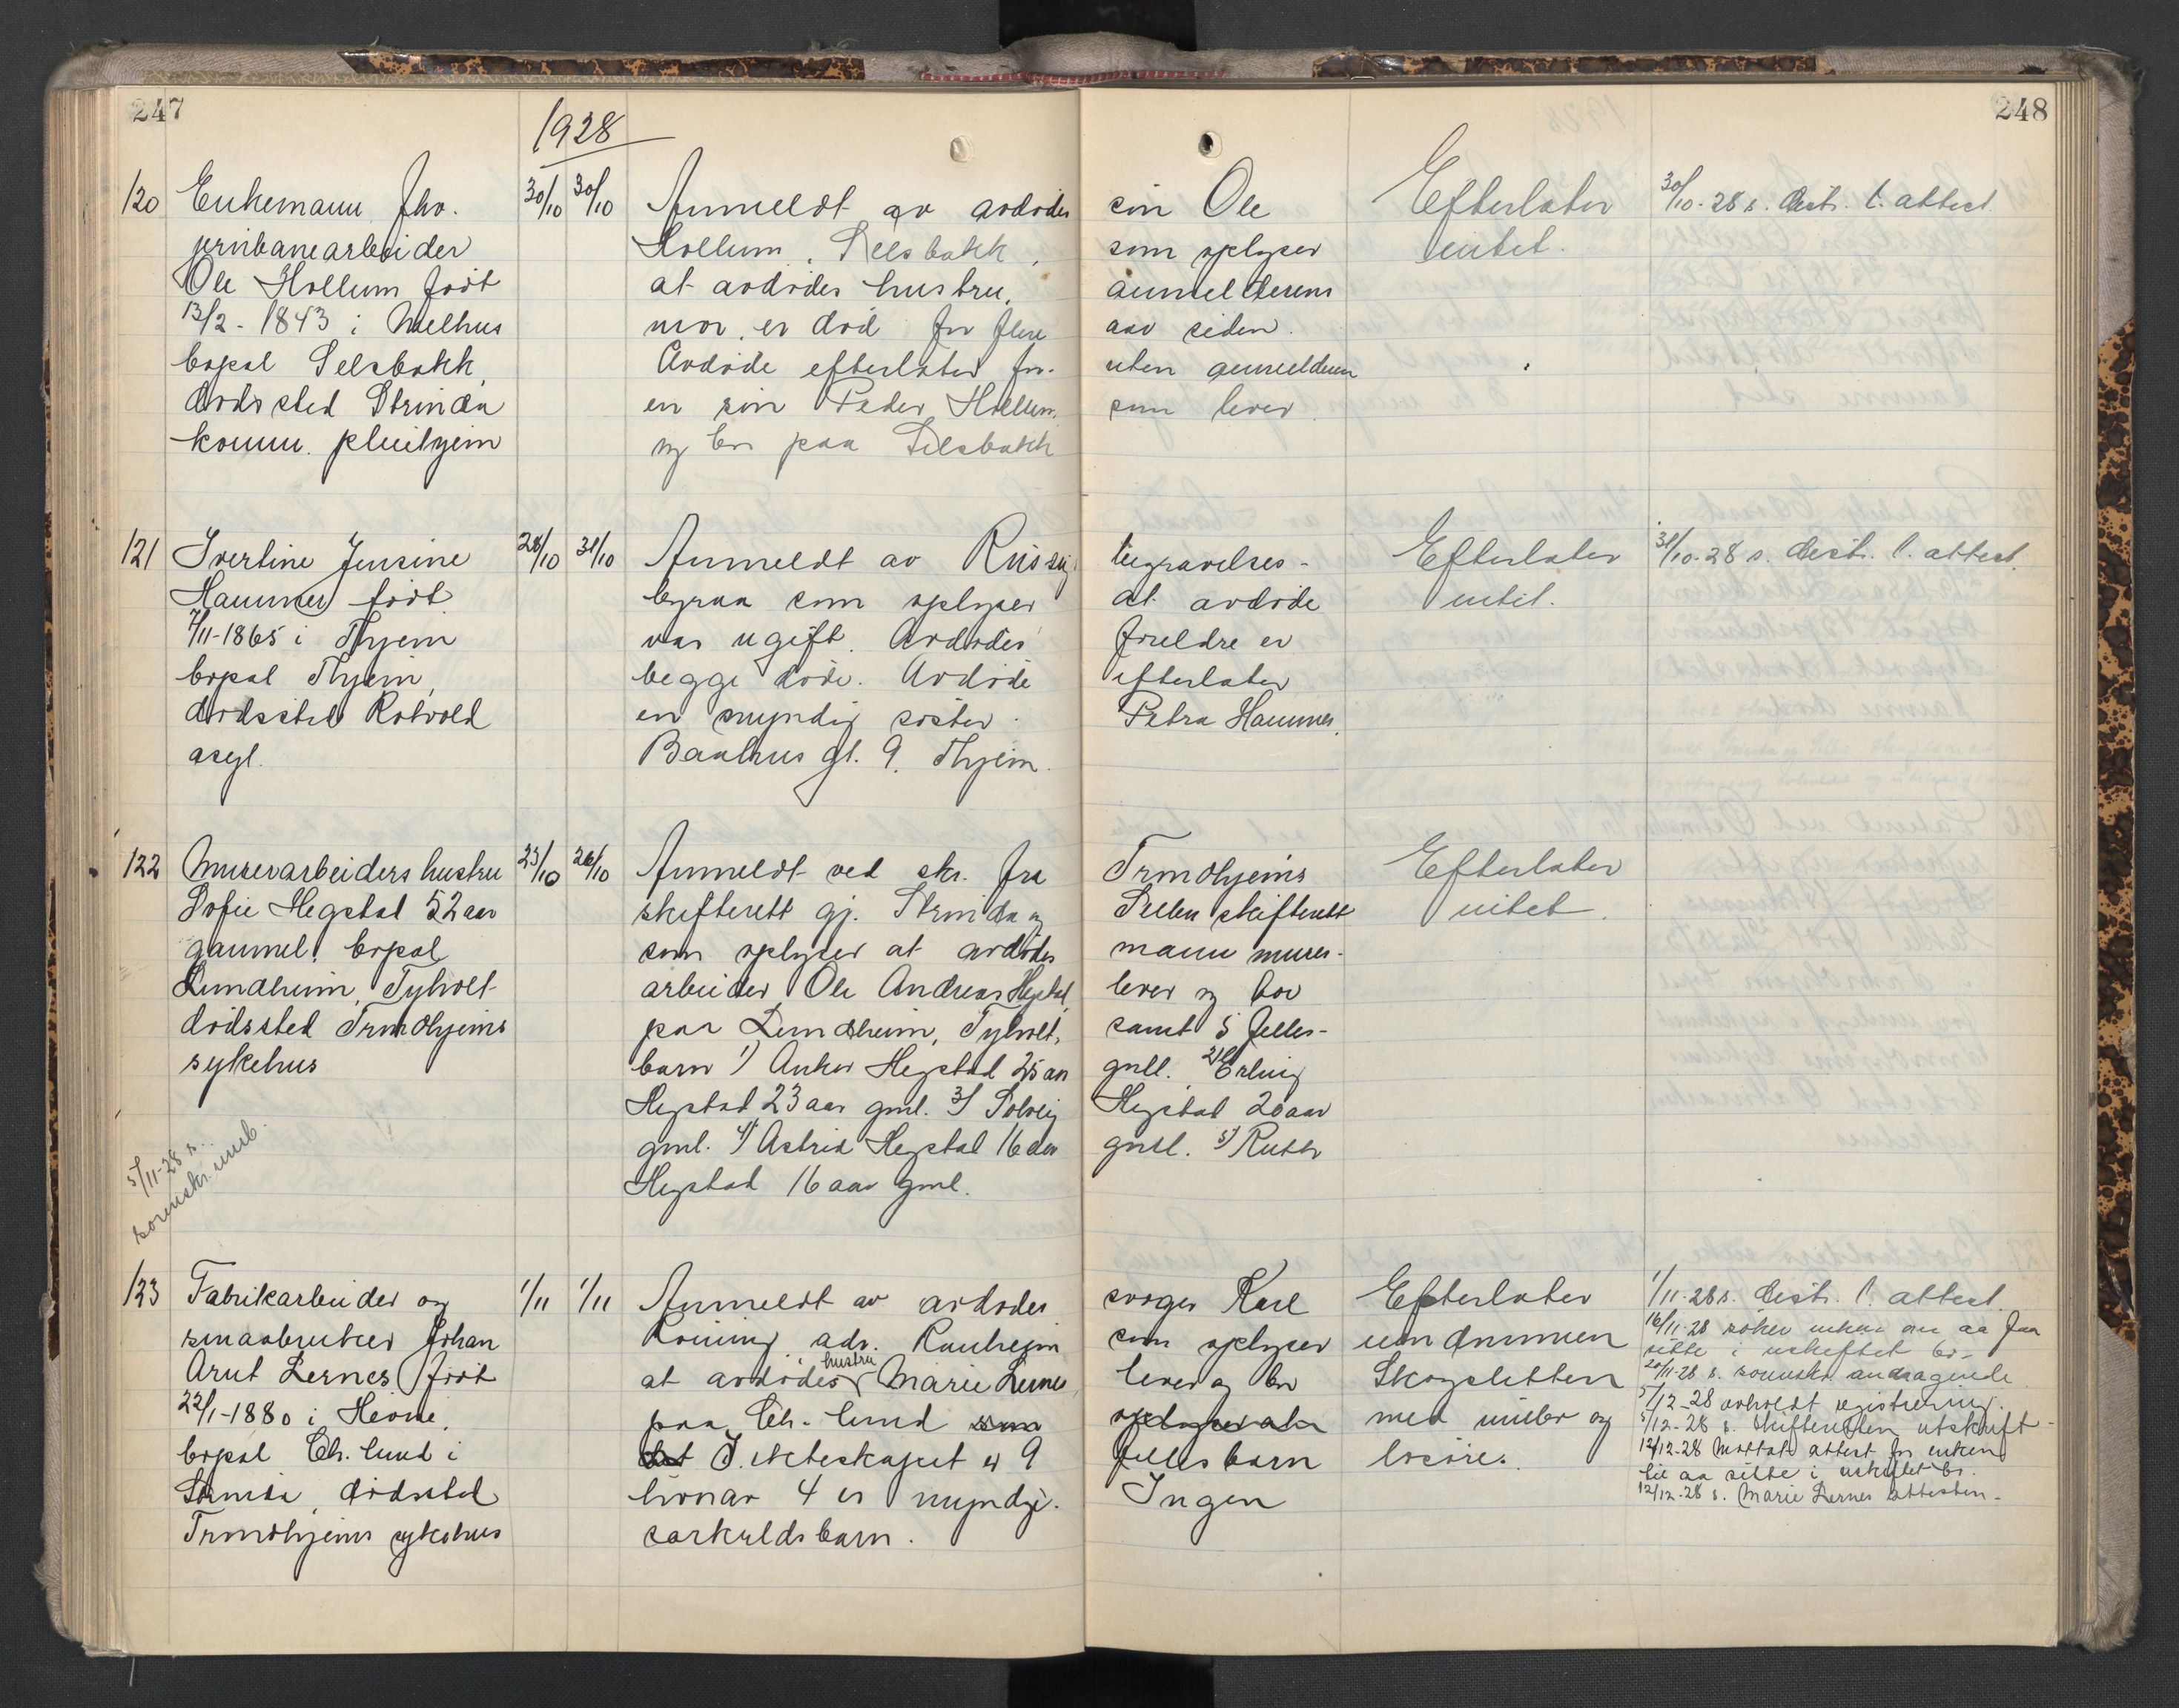 247
248
1928
120
Enkemann fhv.
jernbanearbeider
Ole Hollum født
13/2-1843 i Melhus
bopal Selsbakk,
dødssted Strinda
komm. pleiehjem
30/10
30/10
Anmeldt av avdødes søn Ole
Hollum, Selsbakk, som oplyser
at avdødes hustru, anmelderens
mor, er død for flere aar siden.
Avdøde efterlater for- uten anmelderen
en søn Peder Hollum, som lever
og bor paa Selsbakk
Efterlater
intet.
30/10-28 s. distr. l. attest.
121
Ivertine Jensine
Hammer født
7/11-1865 i Thjem
bopal Thjem,
dødssted Rotvold
asyl.
28/10
31/10
Anmeldt av Russig begravelses-
byraa som oplyser at avdøde
var ugift. Avdødes foreldre er
begge døde. Avdøde efterlater
en myndig søster Petra Hammer,
Baahus gt. 9. Thjem.
Efterlater
intet.
31/10-28 s. distr. l. attest.
122
Murerarbeiders hustru
Sofie Hegstad 52 aar
gammel, bopal
Lundheim, Tyholt
dødssted Trondhjems
sykehus
5/11-28 s.
sorenskr. umb.
23/10
26/10
Anmeldt ved skr. fra Trondhjems
skifterett gj. Strinda og Selbu skifterett
som oplyser at avdødes mann murer-
arbeider Ole Andreas Hegstad, lever og bor
paa Lundheim, Tyholt, samt 5 felles-
barn 1) Anker Hegstad 25 aar gml. 2) Erling
Hegstad 23 aar gml. 3) Solveig Hegstad 20 aar
gml. 4) Astrid Hegstad 16 aar gml. 5) Ruth
Hegstad 16 aar gml.
Efterlater
intet.
123
Fabrikarbeider og
smaabruker Johan
Arnt Lernes født
22/1-1880 i Hevne,
bopal Ch. lund i
Strinda, dødssted
Trondhjems sykehus
1/11
1/11
Anmeldt av avdødes svoger Karl
Rønning, adr. Ranheim som oplyser
at avdødes hustru Marie Lernes lever og bor
paa Ch. lund som oplyser at
det I. ekteskapet er 9 felles barn
hvorav 4 er myndige. Ingen
særkuldsbarn.
Efterlater
eiendommen
Skogsletten
med møbler og
løsøre.
1/11-28 s. distr. l. attest.
16/11-28 søker enken om aa faa
sitte i uskiftet bo-
20/11-28 s. sorenskr. andragende
5/12-28 avholdt registrering.
5/12-28 s. skifteretten utskrift-
12/12-28 Mottatt attest for enken
til aa sitte i uskiftet bo.
12/12-28 s. Marie Lernes attesten-